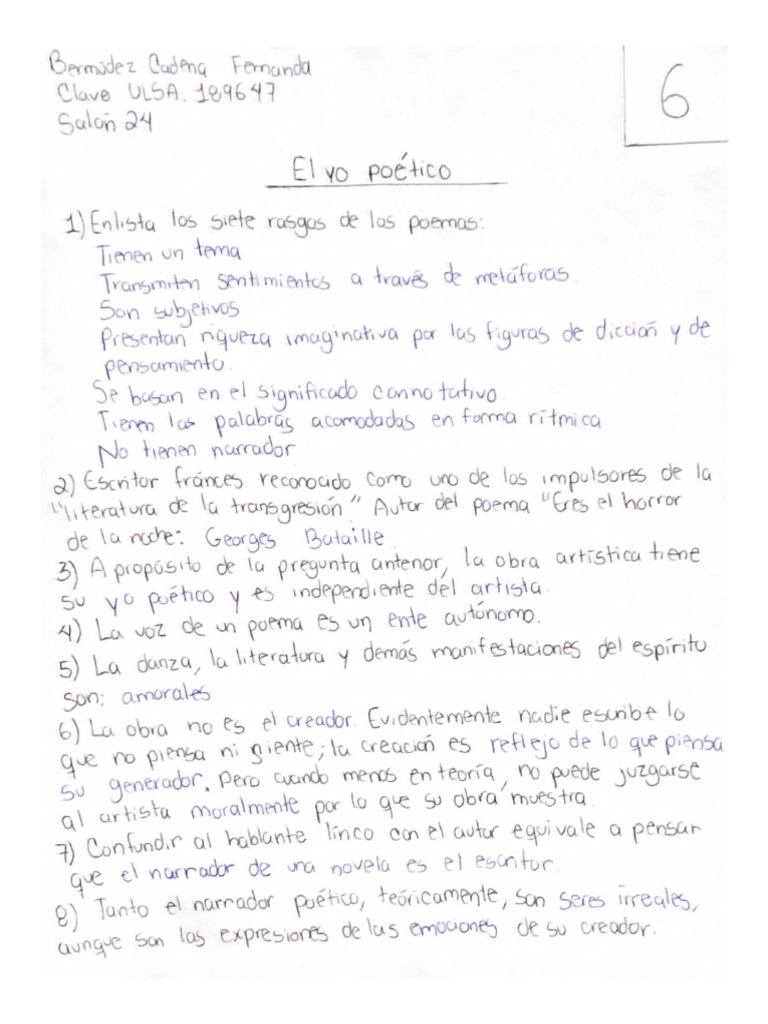 Bermúdez Cadena Fernanda
Clave ULSA. 189647
Salón 24
6
El yo poético
1) Enlista los siete rasgos de los poemas:
Tienen un tema
Transmiten sentimientos a través de metáforas.
Son subjetivos
Presentan riqueza imaginativa por las figuras de dicción y de
pensamiento.
Se basan en el significado connotativo.
Tienen las palabras acomodadas en forma rítmica
No tienen narrador
2) Escritor fránces reconocido como uno de los impulsores de la
"literatura de la transgresión" Autor del poema "Eres el horror
de la noche: Georges Bataille
3) A propósito de la pregunta anterior, la obra artística tiene
su yo poético y es independiente del artista.
4) La voz de un poema es un ente autónomo.
5) La danza, la literatura y demás manifestaciones del espíritu
son: amorales
6) La obra no es el creador. Evidentemente nadie escribe lo
que no piensa ni siente; la creación es reflejo de lo que piensa
su generador. Pero cuando menos en teoría, no puede juzgarse
al artista moralmente por lo que su obra muestra.
7) Confundir al hablante lírico con el autor equivale a pensar
que el narrador de una novela es el escritor.
8) Tanto el narrador poético, teóricamente, son seres irreales,
aunque son las expresiones de las emociones de su creador.